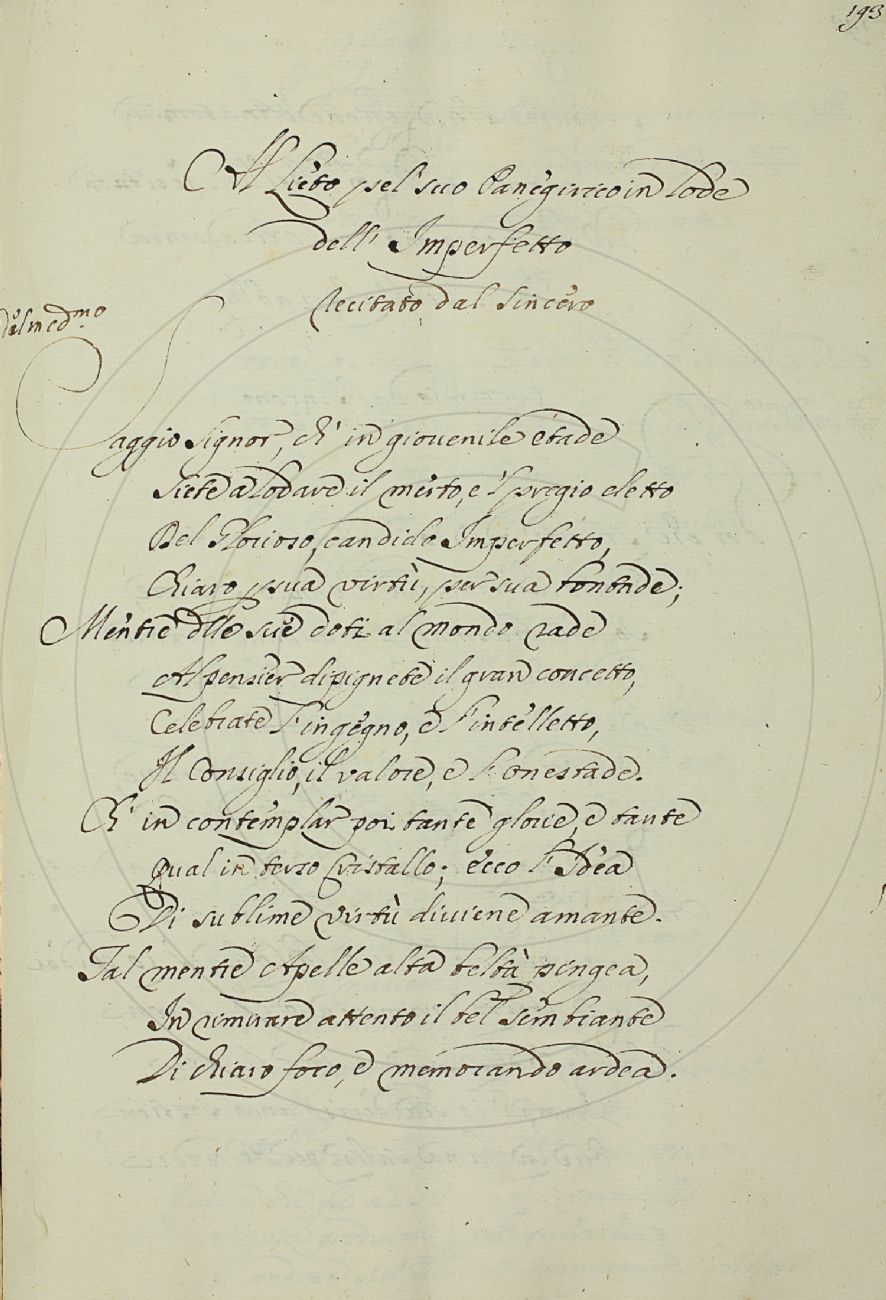 193
Al Lieto pel suo Panegirico in lode
dell' Imperfetto
Recitato dal Sincero
del med.mo
Saggio Signor, ch' in giovenile etade
Siete a lodare il merto, e 'l pregio eletto
Del Glorioso, candido Imperfetto,
Chiaro p sua virtù, per sua bontade;
Mentre dlle sue doti al mondo rade
Al pensier dipignete il gran concetto,
Celebrate l'ingegno, e l'intelletto,
Il Consiglio, il valore, e l'onestade.
Ch' in contemplar poi tante glorie, e tante
Qual in terso Cristallo; ecco l'Idea
Di sublime virtù diviene amante.
Tal mentre Apelle alta beltà pingea,
In rimirare attento il bel sembiante
Di chiaro foco, e memorando ardea.